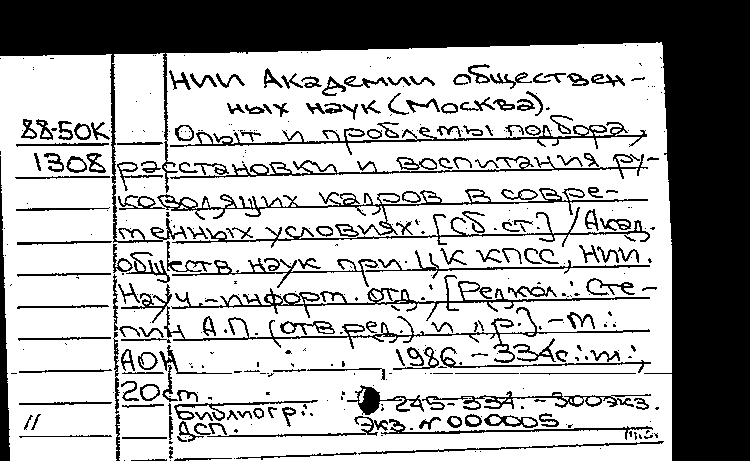 НИИ Академии обществен-
ных наук (Москва).
88-50К Опыт и проблемы подбора,
1308 расстановки и воспитания ру-
ководящих кадров в совре-
менных условиях: [Сб. ст.] / Акад.
обществ. наук при ЦК КПСС, НИИ.
Науч.-информ. отд.; [Редкол.: Сте-
пин А.П. (отв.ред.) и др.]. - М.:
АОН 1986. - 334с.: ил.;
20см.
Библиогр.: с. 245-334. - 300экз.
// ДСП. Экз. № 000005.